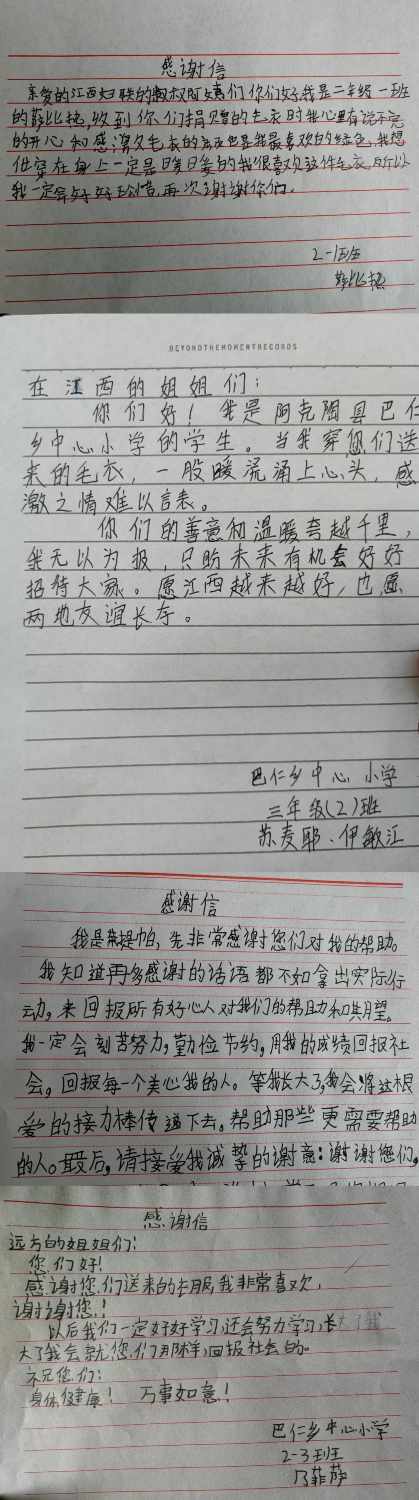 感谢信
亲爱的江西妇联的叔叔阿姨们你们好,我是二年级一班
的薛比热,收到你们捐赠的毛衣时我心里有说不完
的开心和感激,毛衣的颜色也是我最喜欢的绿色,我想
他穿在身上一定是暖暖的我很喜欢这件毛衣,所以
我一定会好好珍惜,再次谢谢你们。
2-1班
薛比热
BEYONDTHEMOMENTRECORDS
在江西的姐姐们:
你们好!我是阿克陶县巴仁
乡中心小学的学生。当我穿您们送
来的毛衣,一股暖流涌上心头,感
激之情难以言表。
你们的善意和温暖夸越千里,
我无以为报,只盼未来有机会好好
招待大家。愿江西越来越好,也愿
两地友谊长存。
巴仁乡中心小学
三年级(2)班
苏麦耶·伊敏江
感谢信
我是热提帕,先非常感谢您们对我的帮助。
我知道再多感谢的话语都不如拿出实际行
动,来回报所有好心人对我们的帮助和期望。
我一定会刻苦努力,勤俭节约,用我的成绩回报社
会,回报每一个关心我的人。等我长大了,我会将这根
爱的接力棒传递下去。帮助那些更需要帮助
的人。最后,请接受我诚挚的谢意:谢谢您们,
感谢信
远方的姐姐们:
您们好!
感谢您们送来的衣服,我非常喜欢,
谢谢您!
以后我们一定好好学习,还会努力学习,长
大了我会就您们那样,回报社会的。
祝您们:
身体健康! 万事如意!
巴仁乡中心小学
2-3班
乃菲萨